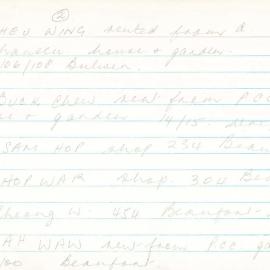 (2)
HEU WING rented from a
house & garden
106/108 Bulwer.
BUCK CHEW rent from P.CC
& garden 14/15.
SAM HOP shop 234 Beau
HOP WAR shop. 304 Be
Cheong W. 454 Beaufort.
AH WAW rent from P.CC ga
100 Beaufort.